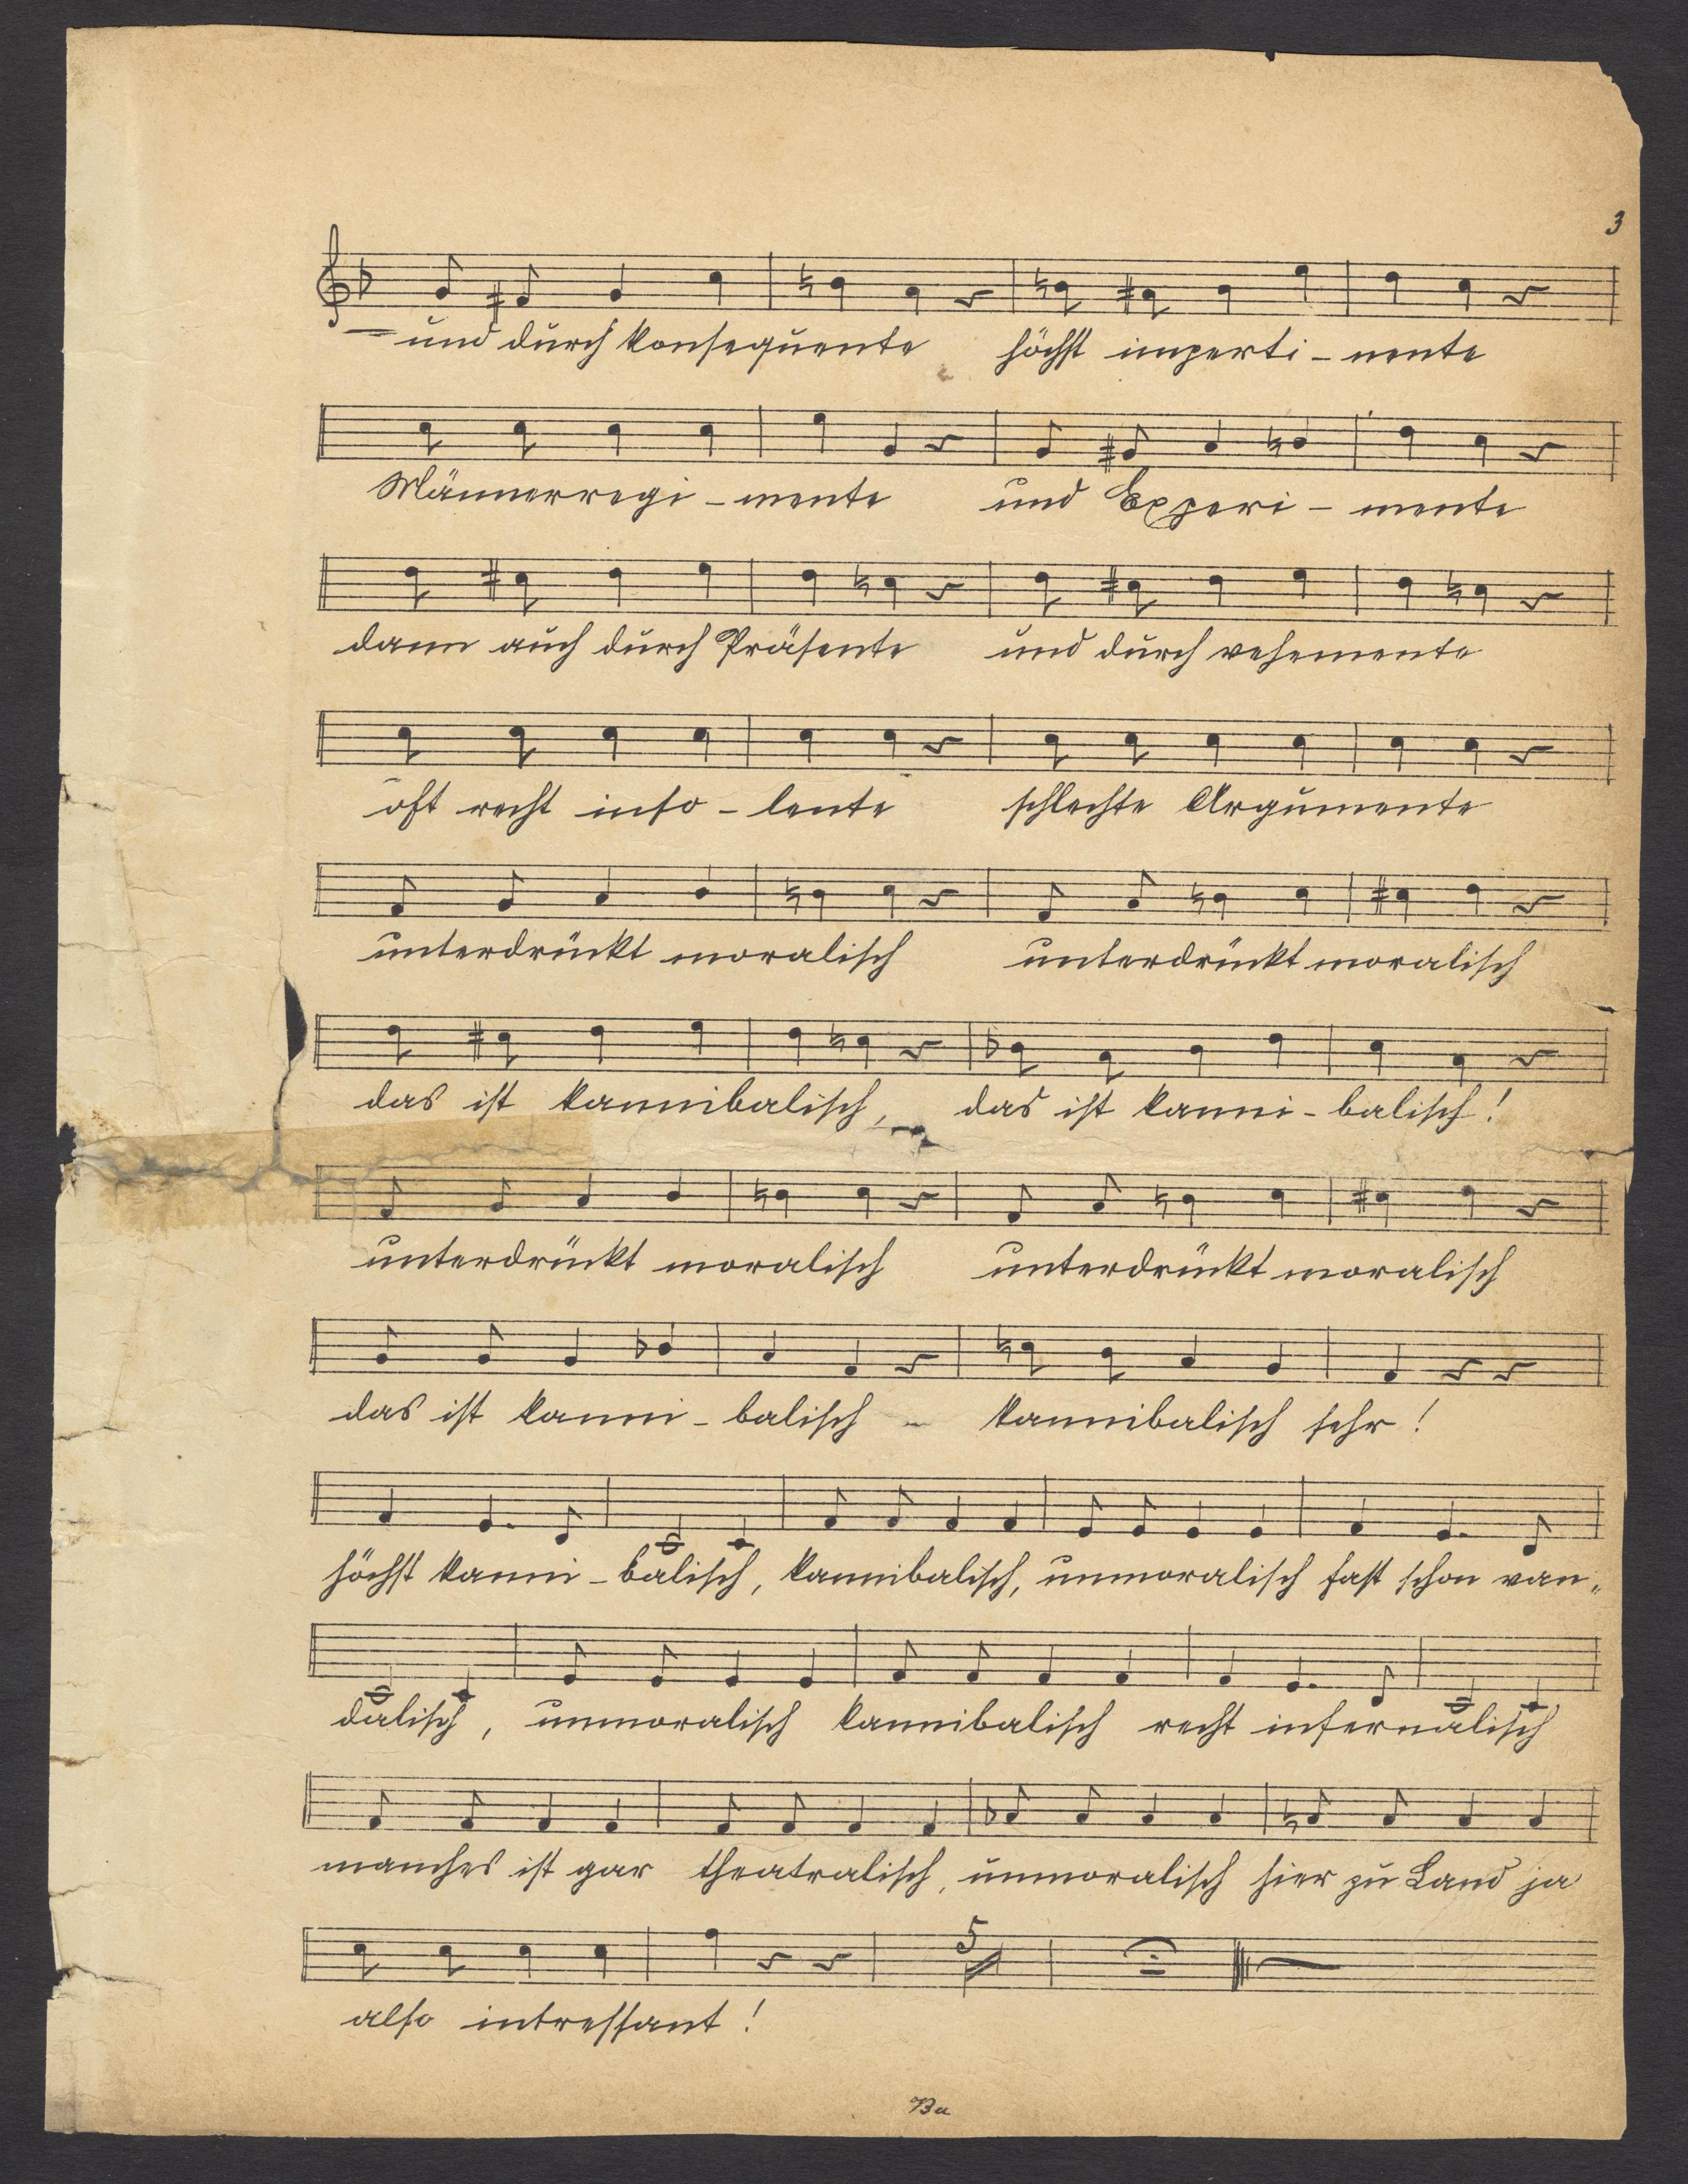 3
und durch konsequente höchst imperti-nente
Männerregi-mente und Experi-mente
dann auch durch Präsente und durch vehemente
oft recht inso-lente schlechte Argumente
unterdrückt moralisch unterdrückt moralisch
das ist kannibalisch, das ist kanni-balisch!
unterdrückt moralisch unterdrückt moralisch
das ist kanni-balisch - kannibalisch sehr!
höchst kanni-balisch, kannibalisch, unmoralisch fast schon van„
dalisch, unmoralisch kannibalisch recht infernalisch
manches ist gar theatralisch, unmoralisch hier zu Land ja
5
also intressant!